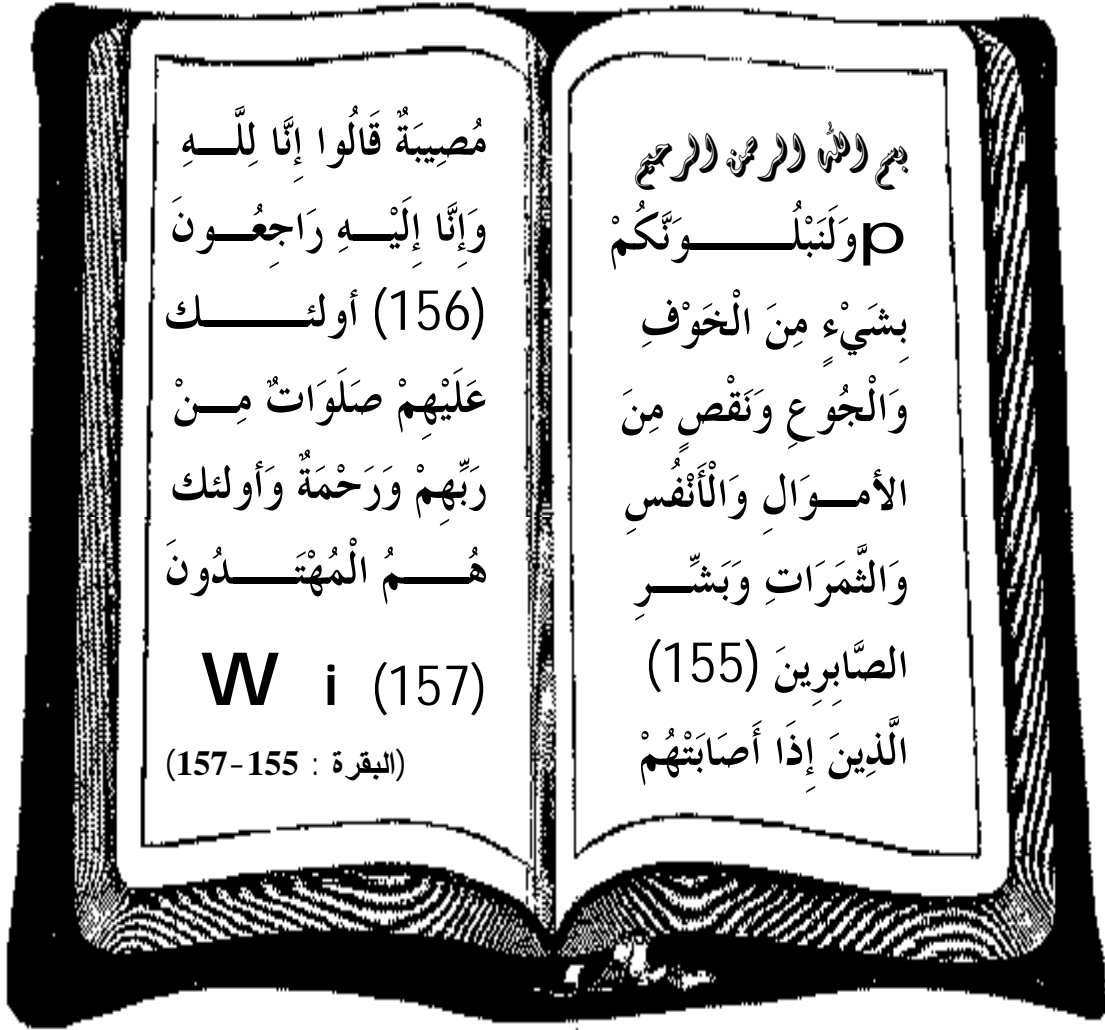 بسم الله الرحمن الرحيم
pوَلَنَبْلُـــــــوَنَّكُمْ
بِشَيْءٍ مِنَ الْخَوْفِ
وَالْجُوعِ وَنَقْصٍ مِنَ
الأمـــوَالِ وَالْأَنْفُسِ
وَالثَّمَرَاتِ وَبَشِّـــرِ
الصَّابِرِينَ (155)
الَّذِينَ إِذَا أَصَابَتْهُمْ
مُصِيبَةٌ قَالُوا إِنَّا لِلَّـــهِ
وَإِنَّا إِلَيْـــهِ رَاجِعُـــونَ
(156) أولئـــــــك
عَلَيْهِمْ صَلَوَاتٌ مِـــنْ
رَبِّهِمْ وَرَحْمَةٌ وَأولئك
هُـــــمُ الْمُهْتَـــــدُونَ
(157) i W
(البقرة : 155-157)